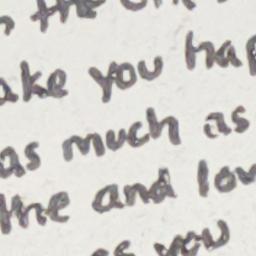 the
ake you hap
as much as
me and lov
as you